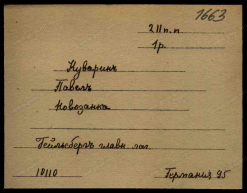 1663
211 п.п.
1 р.
Куваринъ
Павелъ
Новозанка
Гейльсбергъ главн. лаг.
10110 Германия 95